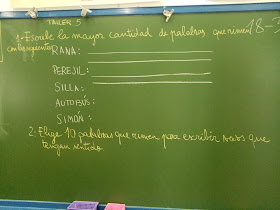 TALLER 5
1-Escribe la mayor cantidad de palabras que rimen 18-
con las siguientes
RANA:
PEREJIL:
SILLA:
AUTOBÚS:
SIMÓN:
2. Elige 10 palabras que rimen para escribir que
tengan sentido.